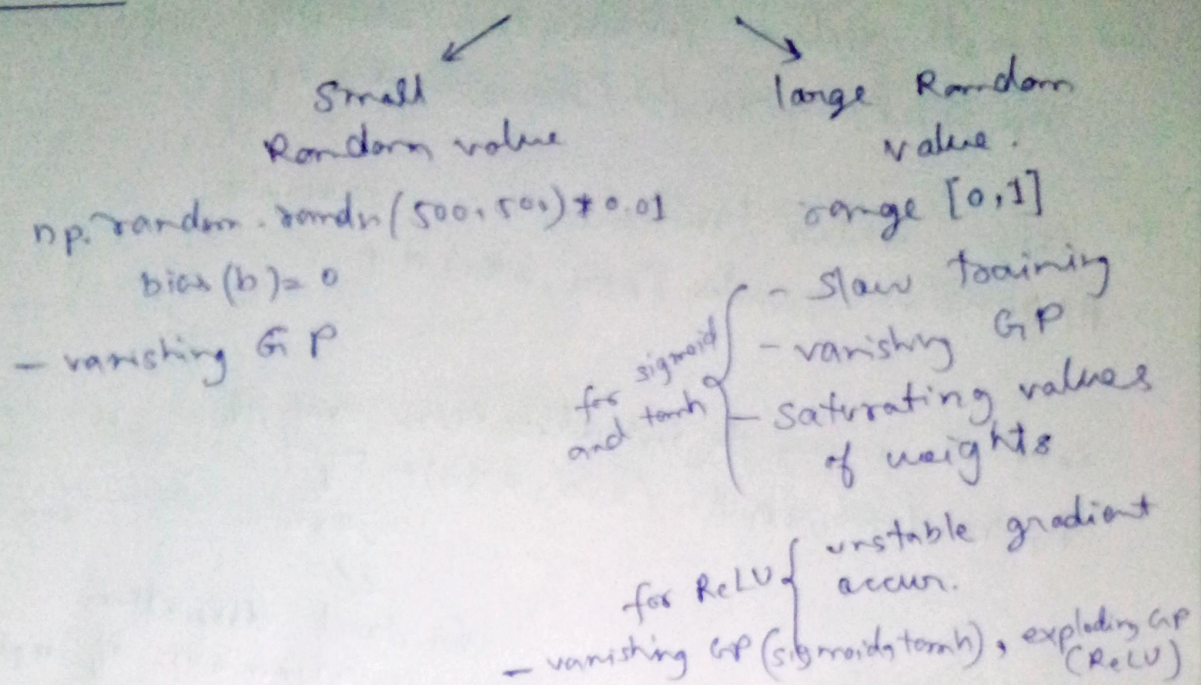 Small
Random value
np.random.randn(500,500)*0.01
bias(b)=0
- vanishing GP
large Random
value.
range [0,1]
for sigmoid
and tanh
- Slow training
- vanishing GP
- saturating values
of weights
for ReLU
unstable gradient
accur.
- vanishing GP (sigmoid, tanh), exploding GP
(ReLU)